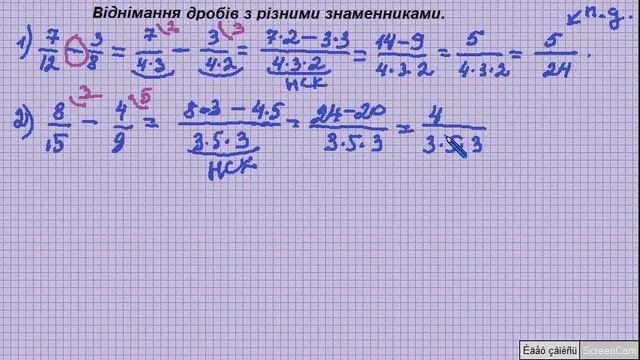 Віднімання дробів з різними знаменниками.
n.g.
1) 7/12 - 3/8 = 7/4·3 - 3/4·2 = 7·2-3·3/4·3·2 = 14-9/4·3·2 = 5/4·3·2 = 5/24.
НСК
2) 8/15 - 4/9 = 8·3-4·5/3·5·3 = 24-20/3·5·3 = 4/3·5·3
НСК
Èäåò çàïèñü
ScreenCam